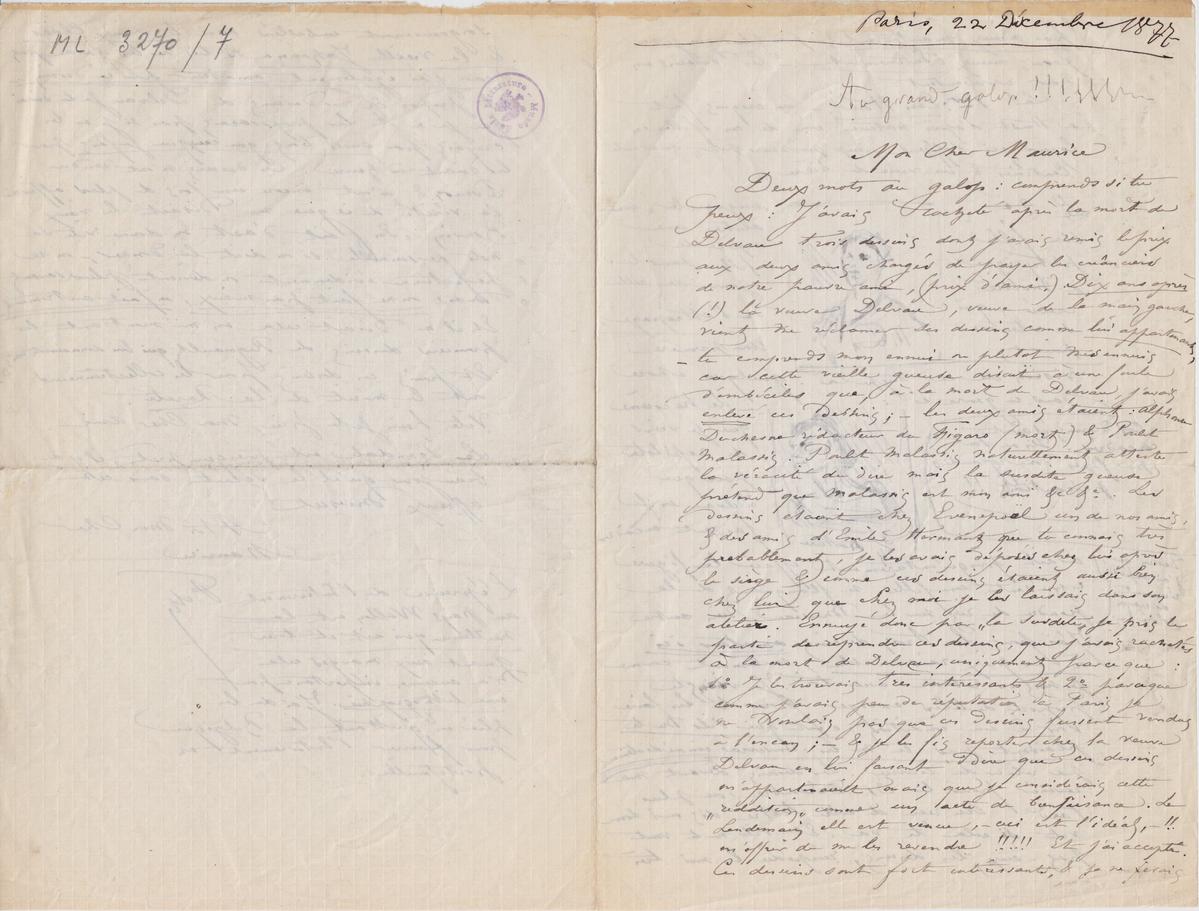 ML 3270/7
Musée de la Littérature
Paris, 22 Décembre 1877
Au grand galop !!!
Mon Cher Maurice
Deux mots au galop : comprends si tu
peux : J'avais racheté après la mort de
Delvau trois dessins dont j'avais remis le prix
aux deux amis chargés de payer les créanciers
de notre pauvre ami, (prix d'amis.) Dix ans après
(!) la veuve Delvau, veuve de la main gauche,
vient me réclamer ses dessins comme lui appartenant,
– tu comprends mon ennui ou plutot mes ennuis
car cette vieille gueuse disait à une foule
d'imbéciles que, à la mort de Delvau, j'avais
enlevé ces dessins ; – les deux amis étaient : Alphonse
Duchesne rédacteur du Figaro (mort) & Poulet
Malassis. Poulet Malassis naturellement atteste
la véracité du dire mais la susdite gueuse
prétend que Malassis est mon ami &c &c. Les
dessins étaient chez Evenepoël un de nos amis,
& des amis d'Emile Hermant que tu connais très
probablement, je les avais déposés chez lui après
le siège & comme ces dessins étaient aussi bien
chez lui que chez moi je les laissais dans son
atelier. Ennuyé donc par „la susdite„ je pris le
parti de reprendre ces dessins, que j'avais rachetés
à la mort de Delvau, uniquement parce que :
1o Je les trouvais très interessants & 2o parceque
comme j'avais peu de réputation à Paris je
ne voulais pas que ces dessins fussent vendus
à l'encan ; – & je les fis reporter chez la veuve
Delvau en lui faisant dire que ces dessins
m'appartenaient mais que je considérais cette
„reddition„ comme un acte de bienfaisance. Le
lendemain elle est venue, – ceci est l'idéal, – !!
m'offrir de me les revendre !!!!! Et j'ai accepté.
Ces dessins sont fort intéressants, & je ne ferais